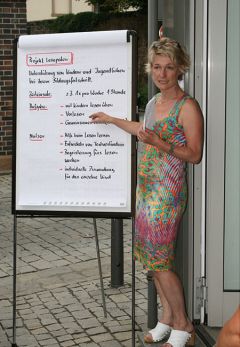 Projekt Lesepaten
Unterstützung von Kindern und Jugendlichen
bei ihrem Bildungsfortschritt.
Zeiteinsatz: z.B. 1x pro Woche 1 Stunde
Aufgaben: - mit Kindern lesen üben
- Vorlesen
- Gemeinsames
Nutzen: - Hilfe beim Lesen lernen
- Entwickeln von Textverständnis
- Begeisterung fürs Lesen
wecken
- individuelle Zuwendung
für das einzelne Kind